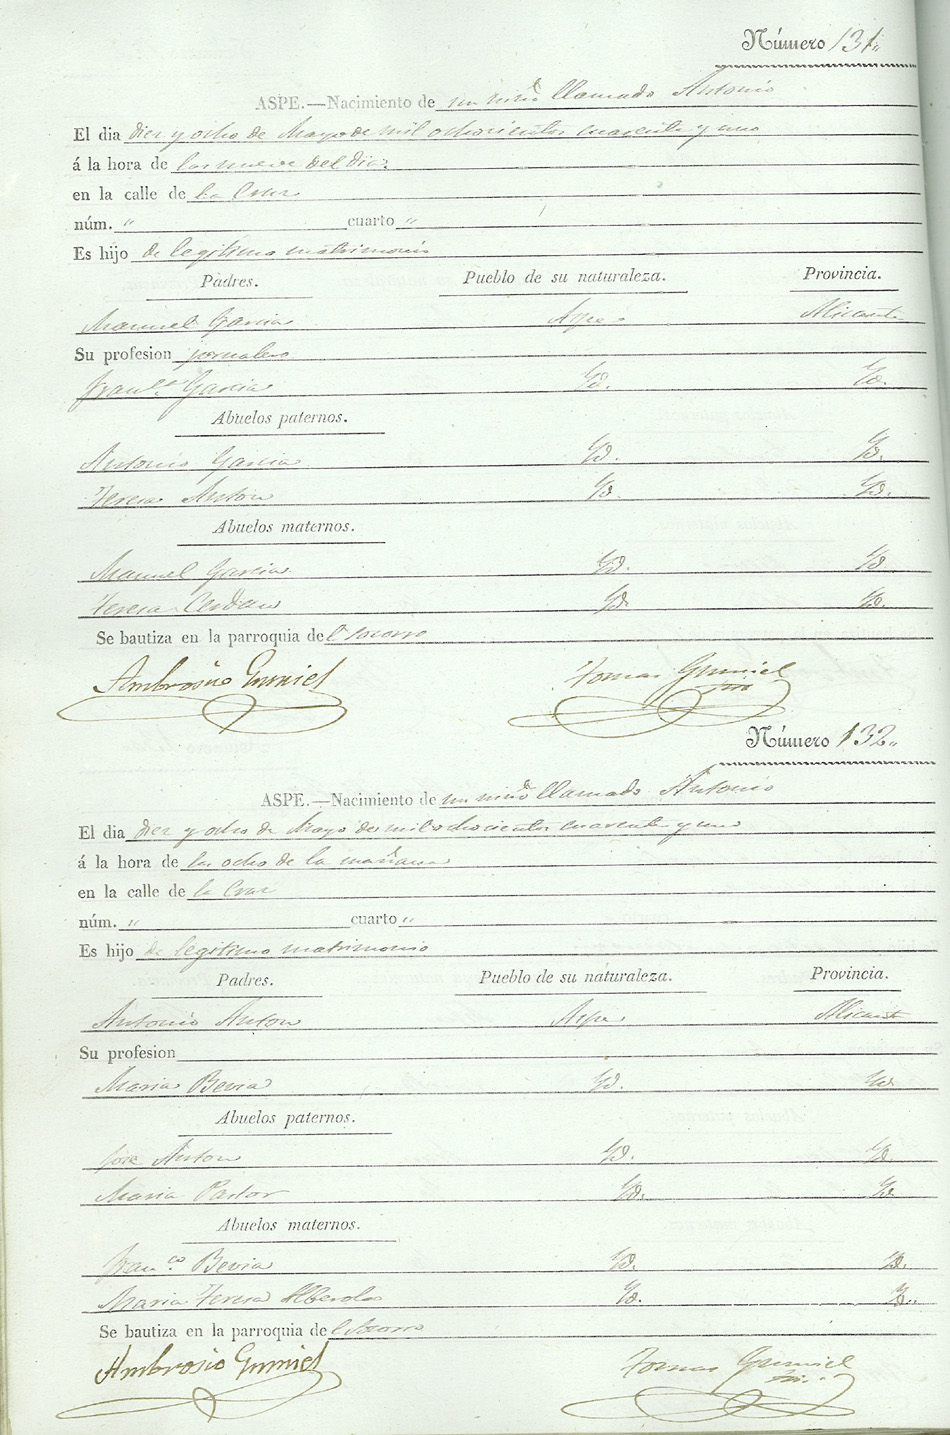 Número 131"
ASPE.—Nacimiento de un niño llamado Antonio
El dia diez y ocho de Mayo de mil ochocientos cuarenta y uno
á la hora de las nueve del dia.
en la calle de la Cruz
núm. " cuarto "
Es hijo de legitimo matrimonio
Padres. Pueblo de su naturaleza. Provincia.
Manuel Garcia Aspe Alicante
Su profesion jornalero
Fran.ca Garcia Yd. Yd.
Abuelos paternos.
Antonio Garcia Yd. Yd.
Teresa Anton Yd. Yd.
Abuelos maternos.
Manuel Garcia Yd. Yd
Teresa Cerdan Yd. Yd.
Se bautiza en la parroquia del Socorro
Ambrosio Gumiel Tomas Gumiel
Número 132"
ASPE.—Nacimiento de un niño llamado Antonio
El dia diez y ocho de Mayo de mil ochocientos cuarenta y uno
á la hora de las ocho de la mañana
en la calle de la Cruz
núm. " cuarto "
Es hijo de legitimo matrimonio
Padres. Pueblo de su naturaleza. Provincia.
Antonio Anton Aspe Alicante
Su profesion
Maria Bevia Yd. Yd.
Abuelos paternos.
José Anton Yd. Yd.
Maria Pastor Yd. Yd.
Abuelos maternos.
Fran.co Bevia Yd. Yd.
Maria Teresa Alberola Yd. Yd.
Se bautiza en la parroquia del Socorro
Ambrosio Gumiel Tomas Gumiel